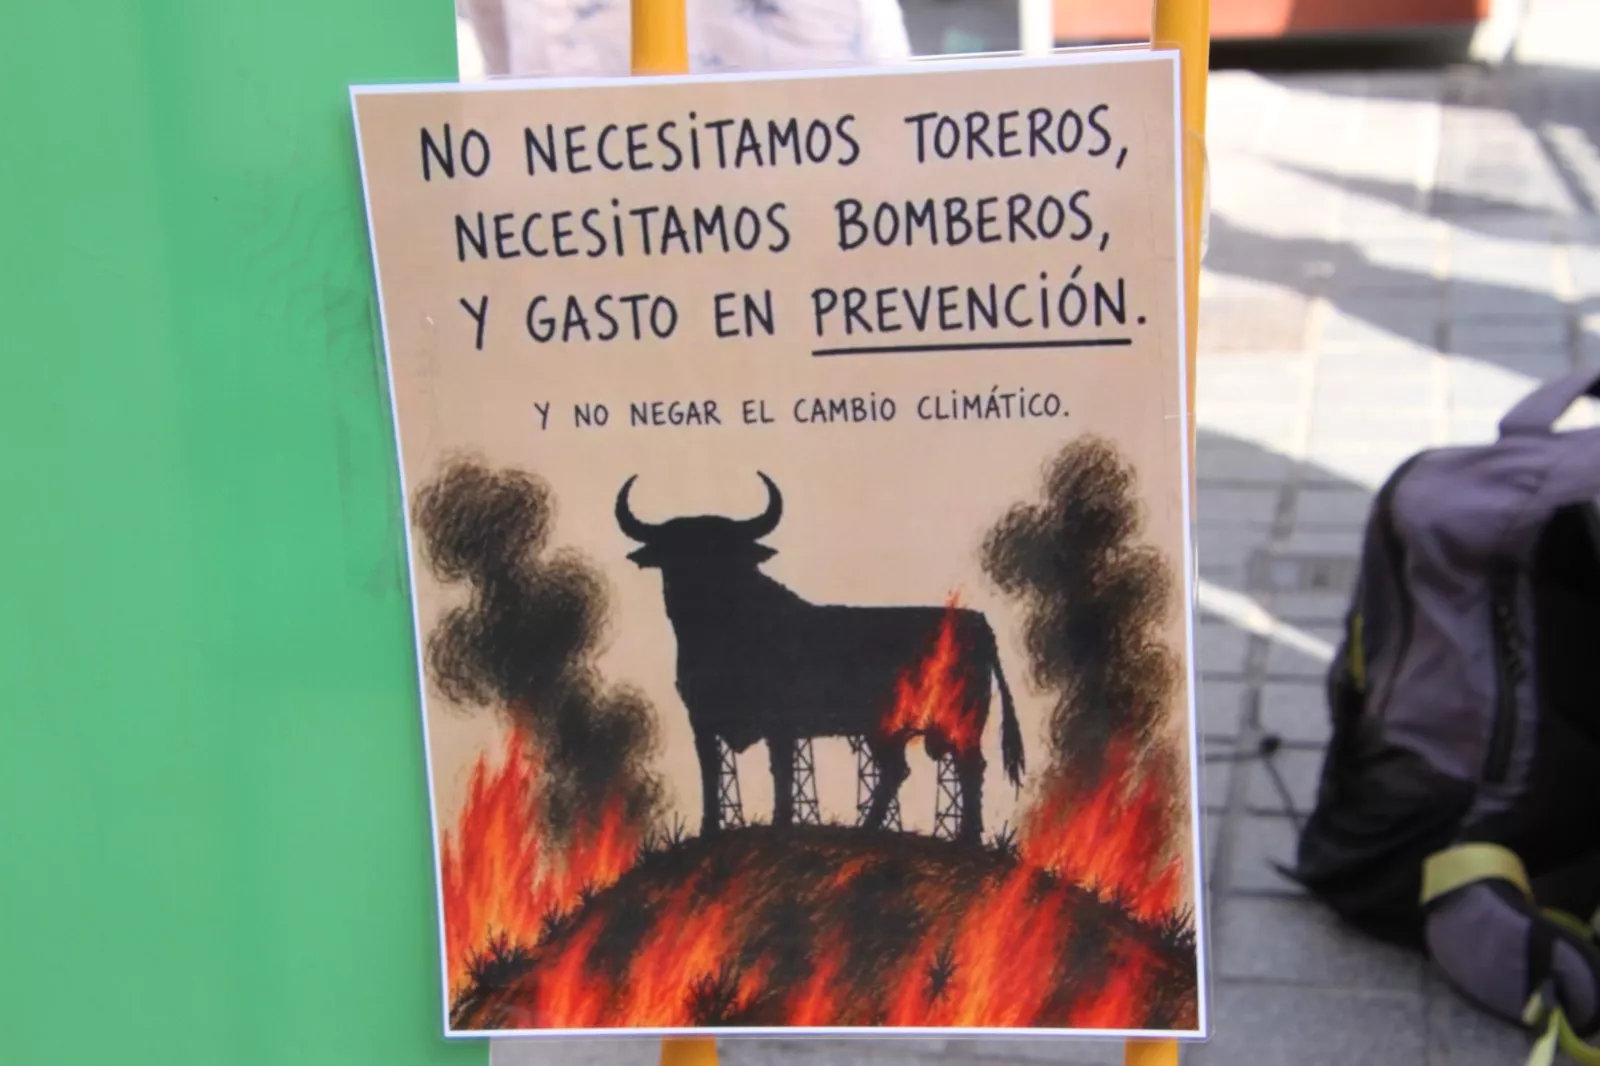 NO NECESITAMOS TOREROS,
NECESITAMOS BOMBEROS,
Y GASTO EN PREVENCIÓN.
Y NO NEGAR EL CAMBIO CLIMÁTICO.